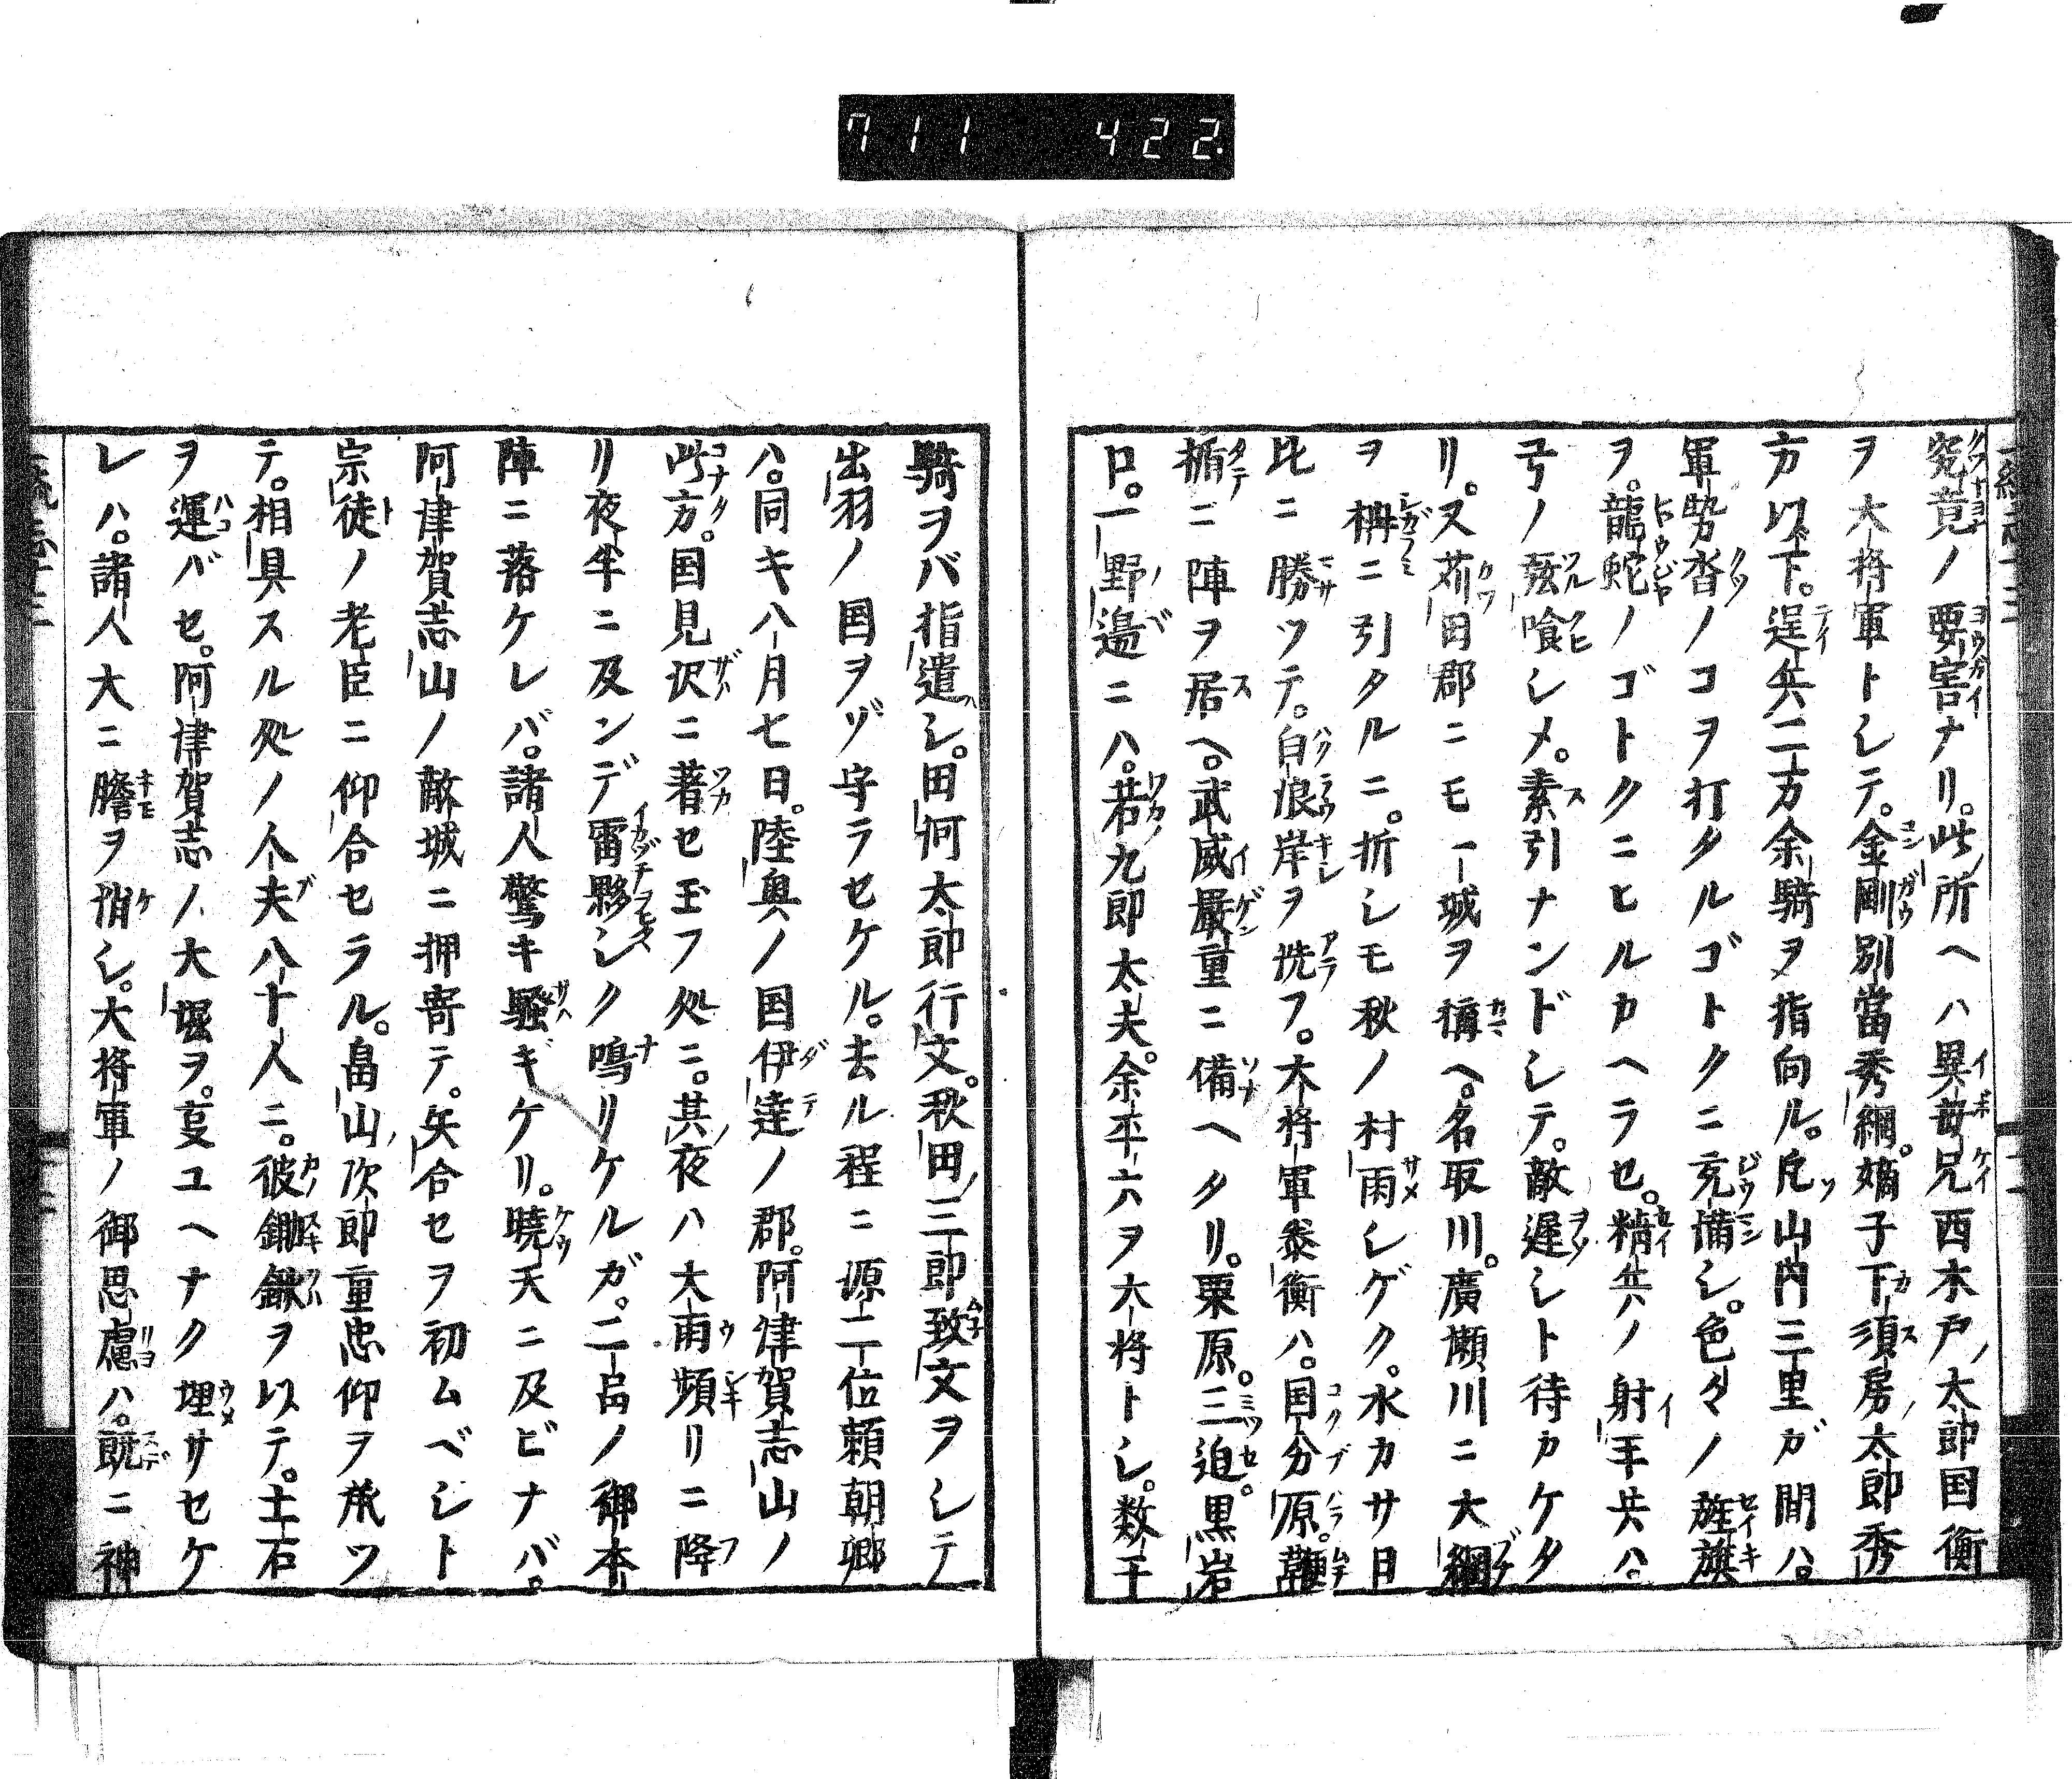 711 422
究竟ノ要害ナリ。此所ヘハ異母兄西木戸太郎国衡
ヲ大将軍トシテ。金剛別當秀綱。嫡子下須房太郎秀
方以下。逞兵二万余騎ヲ指向ル。凡山内三里ガ間ハ。
軍勢沓ノコヲ打タルゴトクニ充備シ。色々ノ旌旗
ヲ。龍蛇ノゴトクニヒルカヘラセ。精兵ノ射手共ハ。
弓ノ弦喰シメ。素引ナンドシテ。敵遅シト待カケタ
リ。又苅田郡ニモ一城ヲ構ヘ。名取川。廣瀬川ニ大綱
ヲ柵ニ引タルニ。折シモ秋ノ村雨シゲク。水カサ日
比ニ勝ツテ。白浪岸ヲ洗フ。大将軍泰衡ハ。国分原。鞭
楯ニ陣ヲ居ヘ。武威嚴重ニ備ヘタリ。栗原。三迫。黒岩
口。一野邉ニハ。若九郎太夫。余平六ヲ大将トシ。数千
騎ヲバ指遣シ。田何太郎行文。秋田三郎致文ヲシテ
出羽ノ国ヲゾ守ラセケル。去ル程ニ源二位頼朝卿
ハ。同キ八月七日。陸奥ノ国伊達ノ郡。阿津賀志山ノ
此方。国見沢ニ著セ玉フ処ニ。其夜ハ大雨頻リニ降
リ夜半ニ及ンデ雷夥シク鳴リケルガ。二品ノ御本
陣ニ落ケレバ。諸人驚キ騒ギケリ。暁天ニ及ビナバ。
阿津賀志山ノ敵城ニ押寄テ。矢合セヲ初ムベシト
宗徒ノ老臣ニ仰合セラル。畠山次郎重忠仰ヲ承ツ
テ。相具スル処ノ人夫八十人ニ。彼鋤鍬ヲ以テ。土石
ヲ運バセ。阿津賀志ノ大堀ヲ。夏ユヘナク埋サセケ
レハ。諸人大ニ膽ヲ悄シ。大将軍ノ御思慮ハ。既ニ神